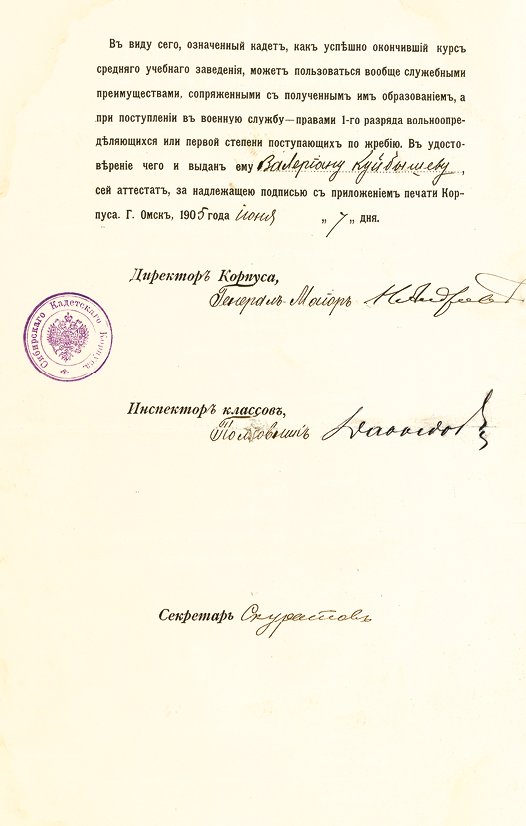 Въ виду сего, означенный кадетъ, какъ успѣшно окончившій курсъ
средняго учебнаго заведенія, можетъ пользоваться вообще служебными
преимуществами, сопряженными съ полученнымъ имъ образованіемъ, а
при поступленіи въ военную службу—правами 1-го разряда вольноопре-
дѣляющихся или первой степени поступающихъ по жребію. Въ удосто-
вѣреніе чего и выданъ ему Валеріану Куйбышеву,
сей аттестатъ, за надлежащею подписью съ приложеніемъ печати Кор-
пуса. Г. Омскъ, 1905 года Іюня „ 7 „ дня.
Директоръ Корпуса,
Генералъ-Маіоръ
Сибирскаго Кадетскаго Корпуса
Инспекторъ классовъ,
Полковникъ
Секретарь Скуратовъ